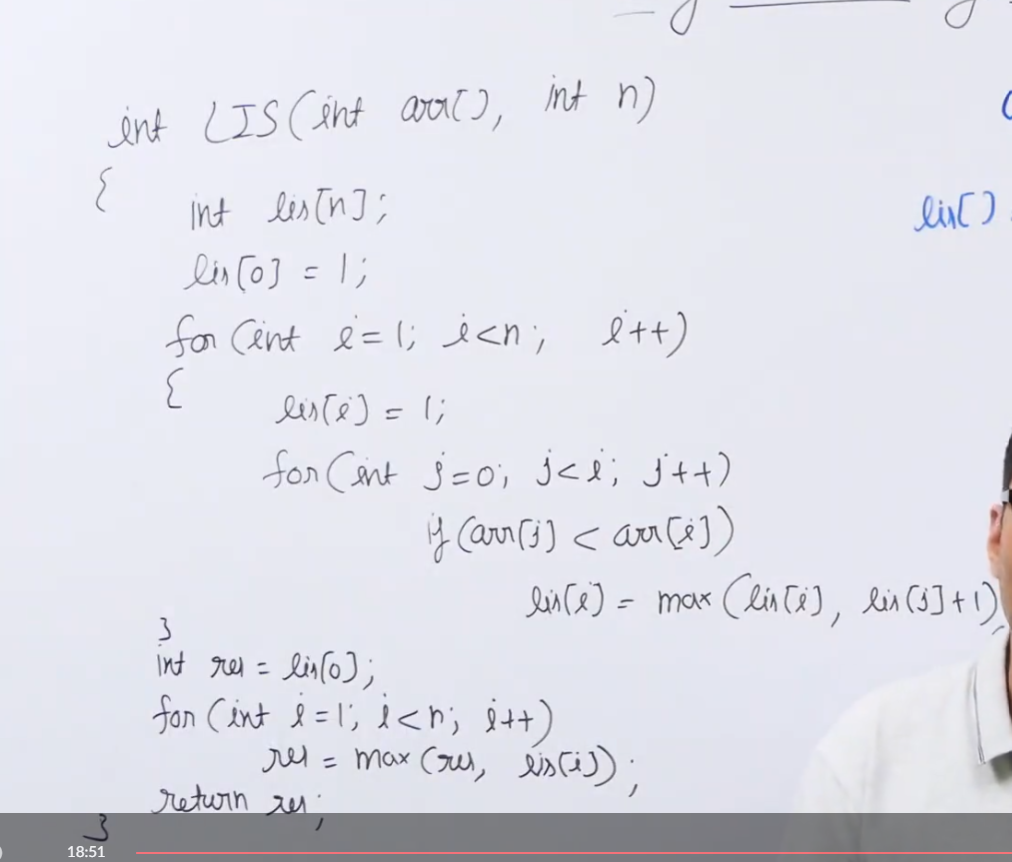 int LIS(int arr[], int n)
{
int lis[n];
lis[0] = 1;
for (int i=1; i<n; i++)
{
lis[i] = 1;
for(int j=0; j<i; j++)
if (arr[j] < arr[i])
lis[i] = max (lis[i], lis[j]+1)
}
int res = lis[0];
for (int i=1; i<n; i++)
res = max (res, lis[i]);
return res;
}
lis[]
18:51